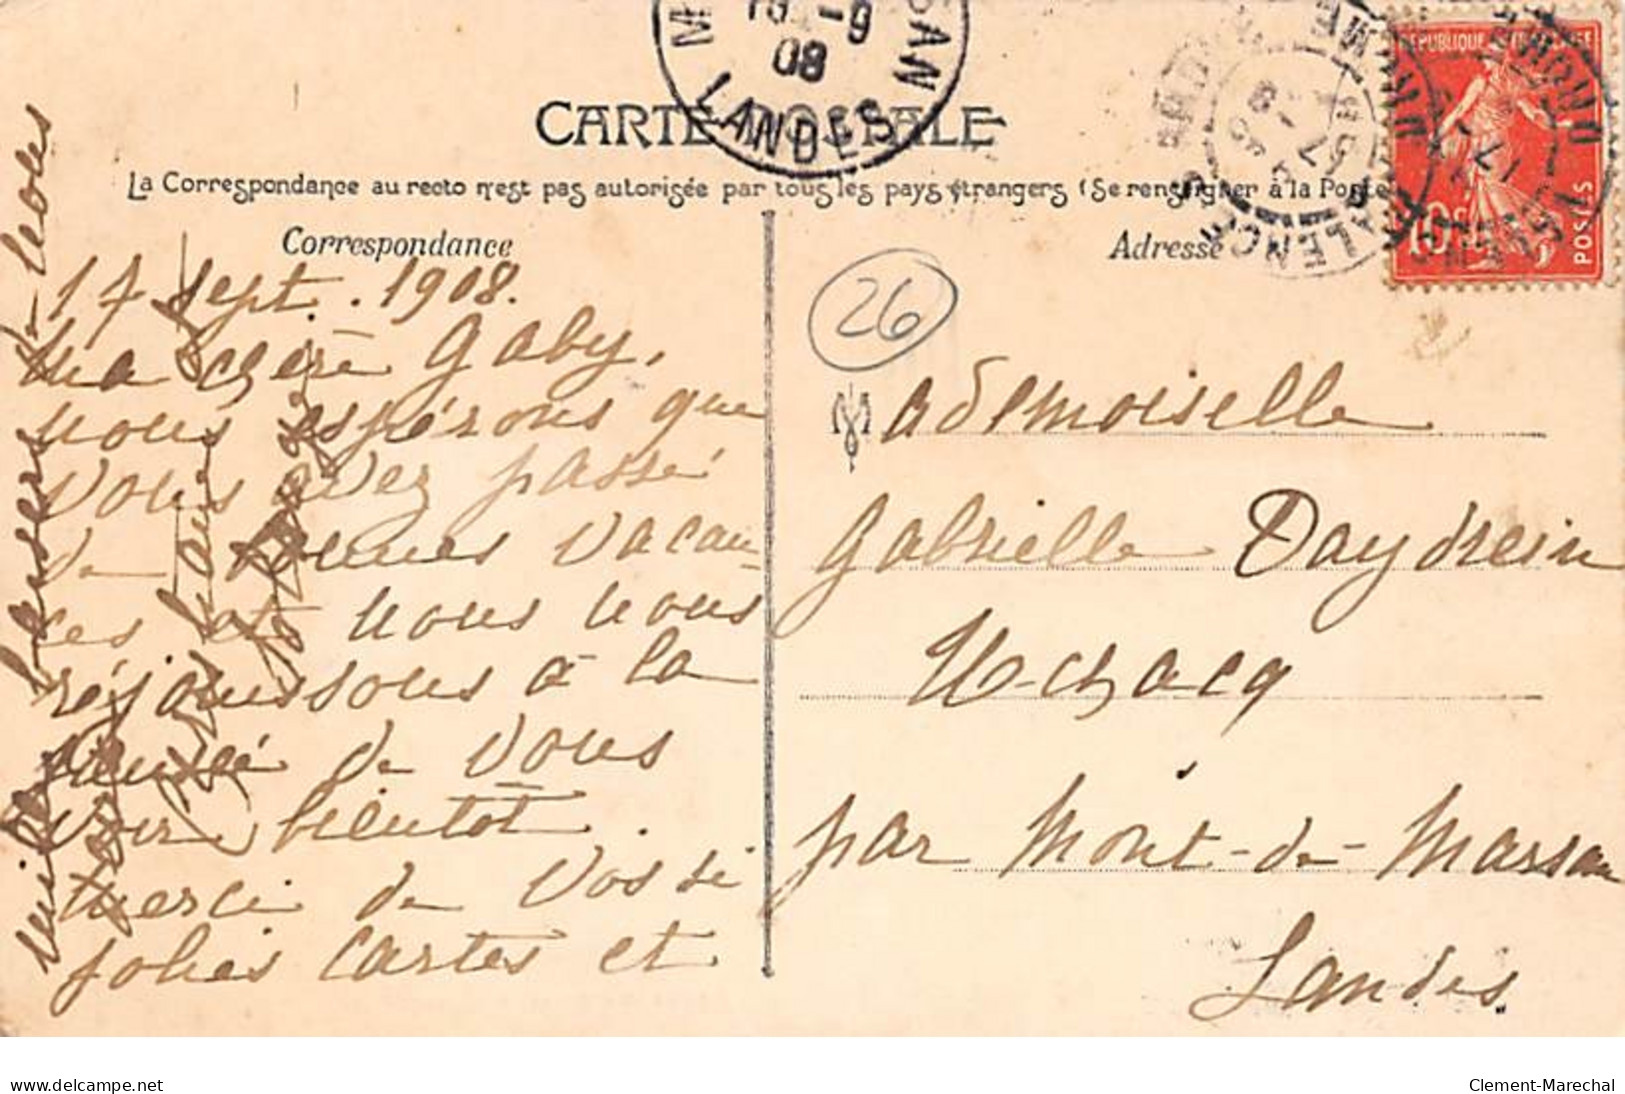 CARTE POSTALE
La Correspondance au recto n'est pas autorisée par tous les pays étrangers (Se renseigner à la Poste
Correspondance
17 sept. 1908.
Ma chère Gaby,
nous espérons que
vous avez passé
de bonnes vacan-
ces et nous nous
réjouissons à la
pensée de vous
voir bientôt.
merci de vos si
jolies cartes et
mille baisers de nous
Adresse
26
Mademoiselle
Gabrielle Daydrein
Uchacq
par Mont-de-Marsan
Landes
LANDES
-9
08
REPUBLIQUE FRANÇAISE
10c
POSTES
delcampe.net
Clement-Marechal